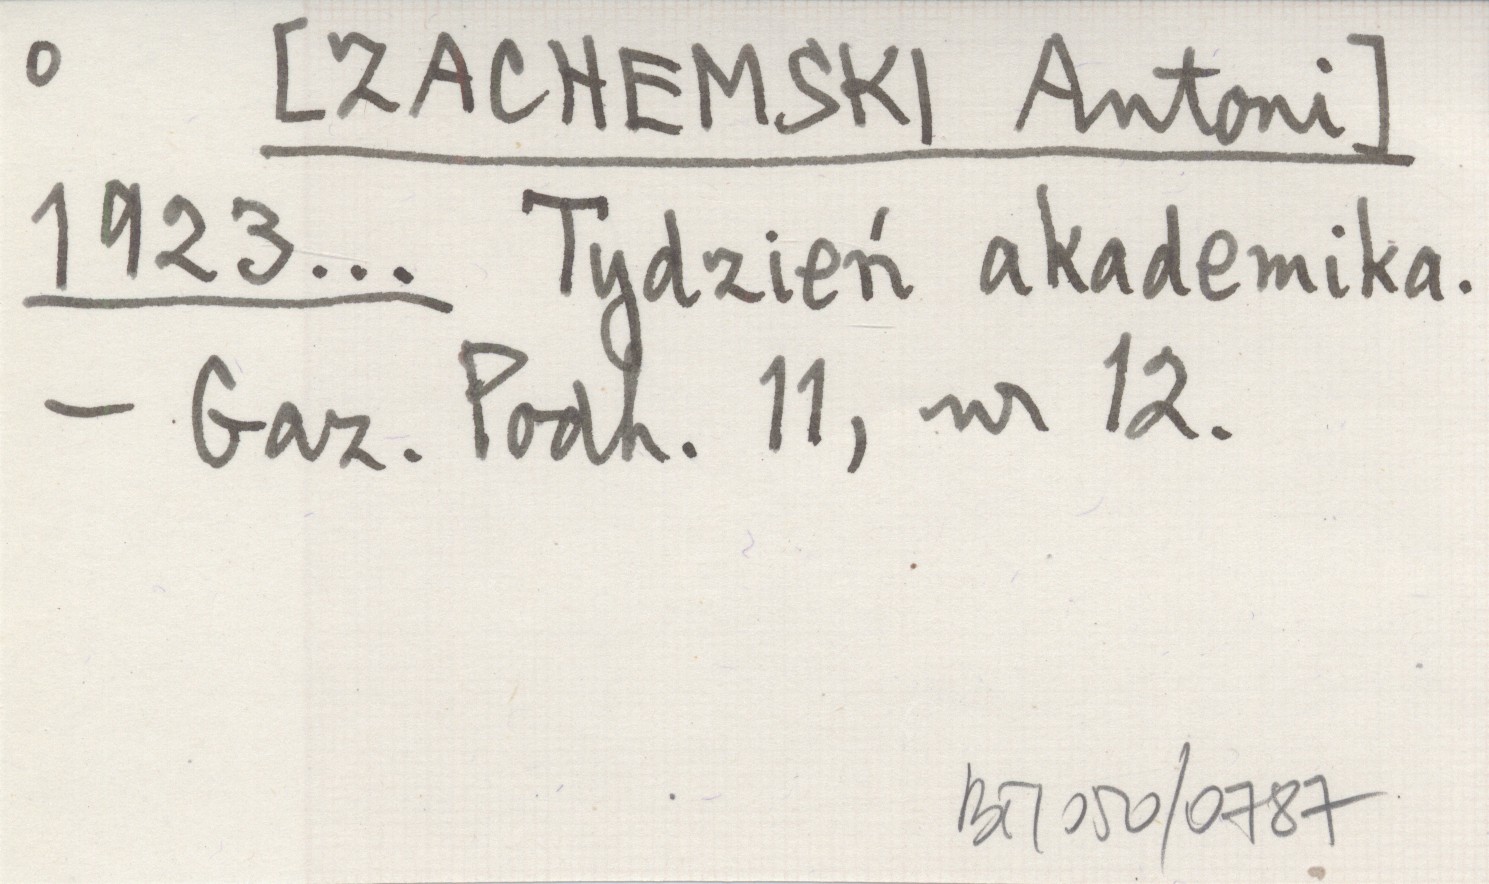 o [ZACHEMSKI Antoni]
1923... Tydzień akademika.
– Gaz. Podh. 11, nr 12.
050/0787